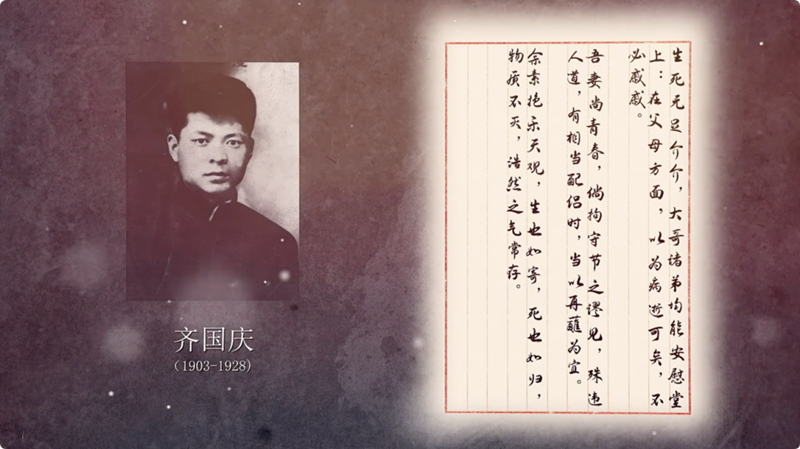 齐国庆
(1903-1928)
生死无足介介，大哥诸弟均能安慰堂
上：在父母方面，以为病逝可矣，不
必戚戚。
吾妻尚青春，倘拘守节之谬见，殊违
人道，有相当配侣时，当以再醮为宜。
余素抱乐天观，生也如寄，死也如归，
物质不灭，浩然之气常存。